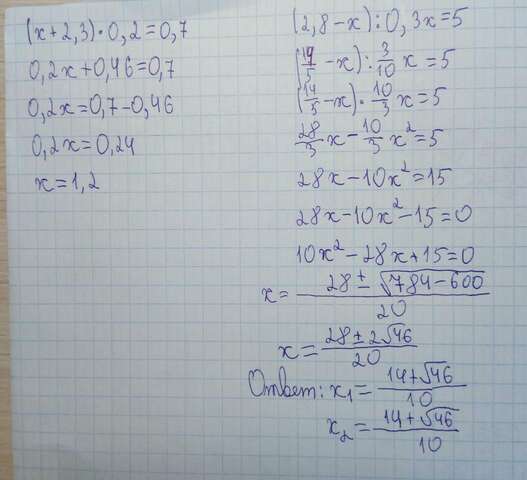 (x+2,3)·0,2=0,7
0,2x+0,46=0,7
0,2x=0,7-0,46
0,2x=0,24
x=1,2
(2,8-x):0,3x=5
(14/5-x):3/10 x=5
(14/5-x)·10/3 x=5
28/3 x-10/3 x²=5
28x-10x²=15
28x-10x²-15=0
10x²-28x+15=0
x=(28±√(784-600))/20
x=(28±2√46)/20
Ответ: x₁=(14+√46)/10
x₂=(14+√46)/10